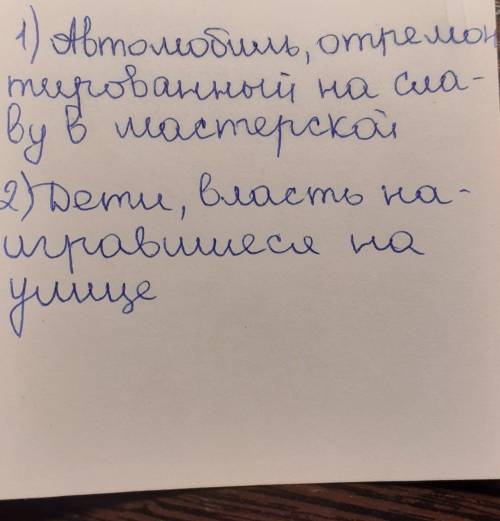 1) Автомобиль, отремон
тированный на сла-
ву в мастерской
2) Дети, власть на-
игравшиеся на
улице